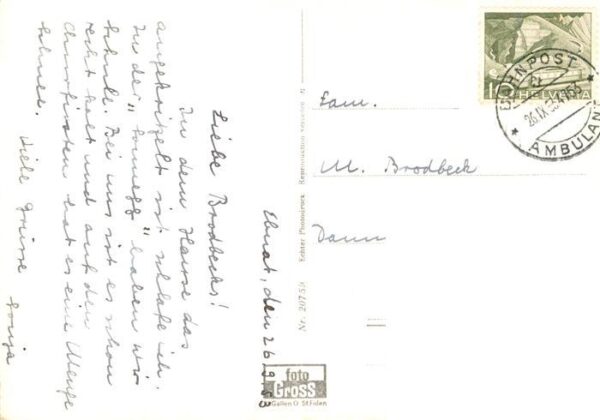 Ebnat, den 26.9.53
Liebe Brodbecks!
In dem Hause das
angekritzelt ist schlafe ich.
In der "Sonnegg" haben wir
Schule. Bei uns ist es schon
recht kalt und auf den
Churfirsten hat es eine Menge
Schnee. Viele Grüsse
Sonja
Fam.
M. Brodbeck
HELVETIA
BAHNPOST
26.IX.53
AMBULANT
Nr. 20759 Echter Photodruck Reproduktion verboten
foto
Gross
St Gallen O St Fiden